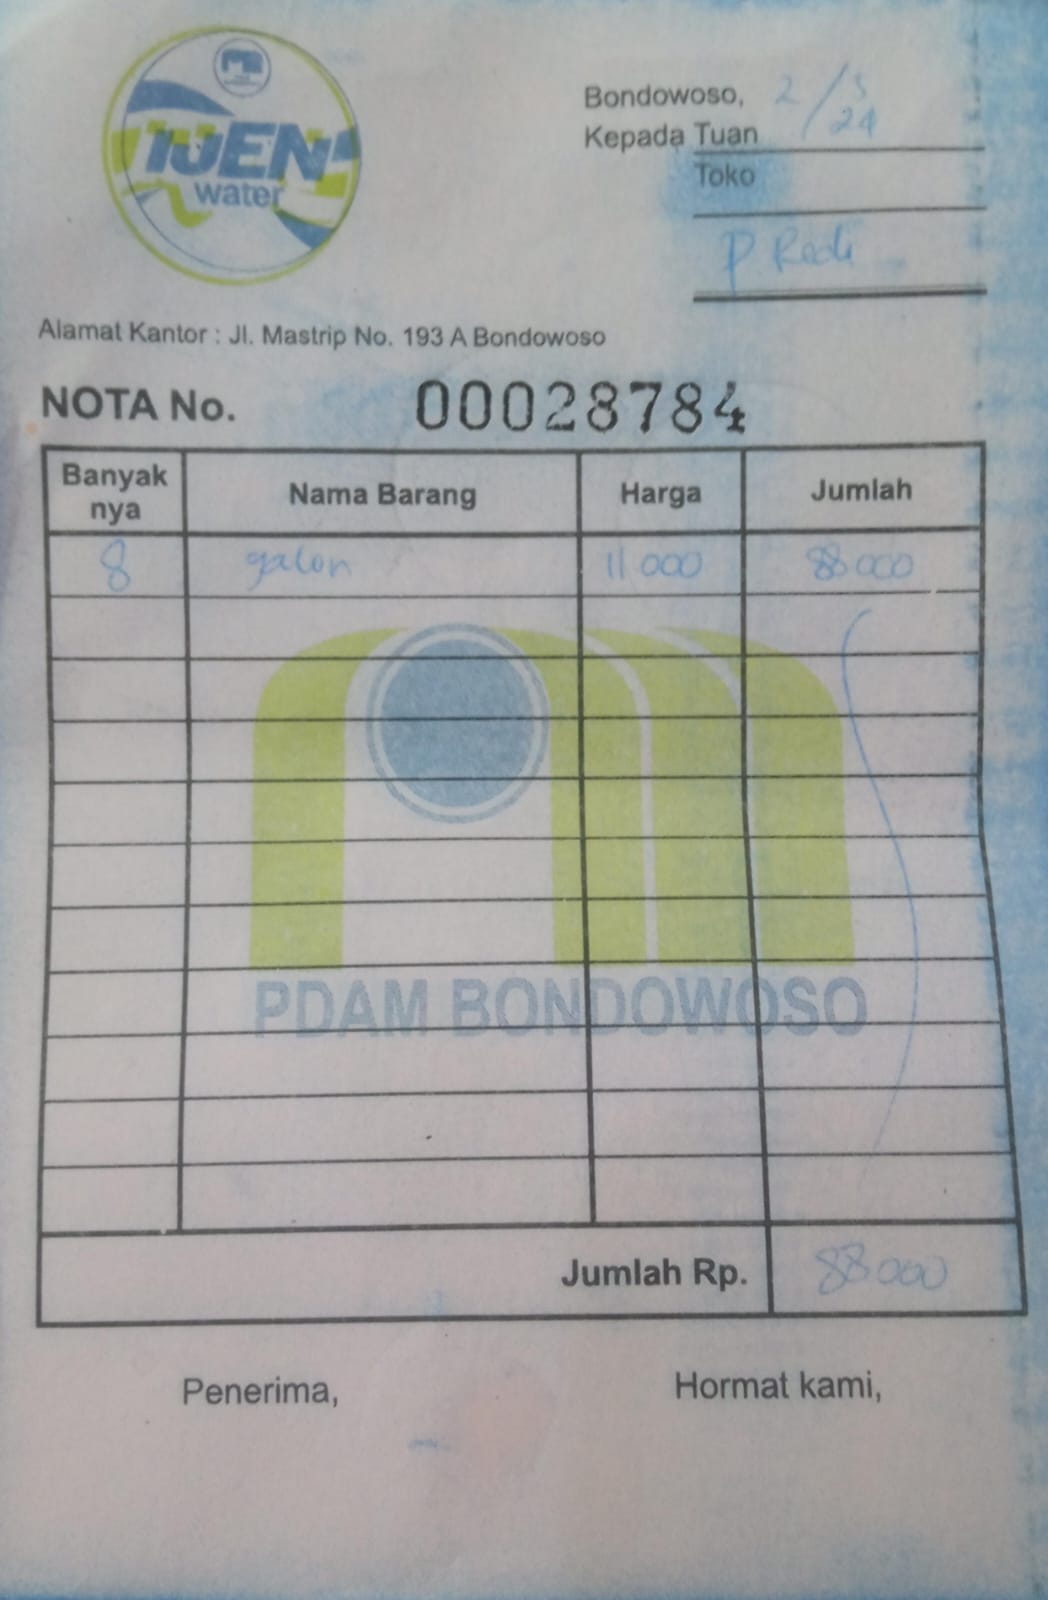 IJEN
water
Bondowoso, 2/5
24
Kepada Tuan
Toko
P Redi
Alamat Kantor : Jl. Mastrip No. 193 A Bondowoso
NOTA No. 00028784
Banyak nya Nama Barang Harga Jumlah
8 galon 11 000 88 000
PDAM BONDOWOSO
Jumlah Rp. 88.000
Penerima, Hormat kami,